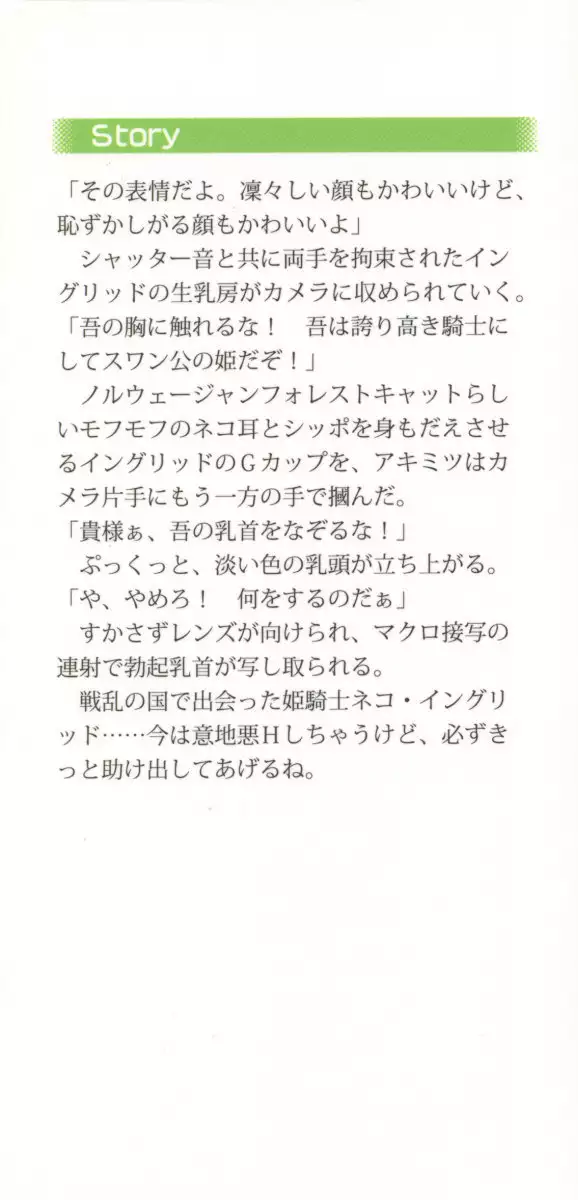 Story
「その表情だよ。凜々しい顔もかわいいけど、
恥ずかしがる顔もかわいいよ」
　シャッター音と共に両手を拘束されたイン
グリッドの生乳房がカメラに収められていく。
「吾の胸に触れるな！　吾は誇り高き騎士に
してスワン公の姫だぞ！」
　ノルウェージャンフォレストキャットらし
いモフモフのネコ耳とシッポを身もだえさせ
るイングリッドのＧカップを、アキミツはカ
メラ片手にもう一方の手で摑んだ。
「貴様ぁ、吾の乳首をなぞるな！」
　ぷっくっと、淡い色の乳頭が立ち上がる。
「や、やめろ！　何をするのだぁ」
　すかさずレンズが向けられ、マクロ接写の
連射で勃起乳首が写し取られる。
　戦乱の国で出会った姫騎士ネコ・イングリ
ッド……今は意地悪Ｈしちゃうけど、必ずき
っと助け出してあげるね。